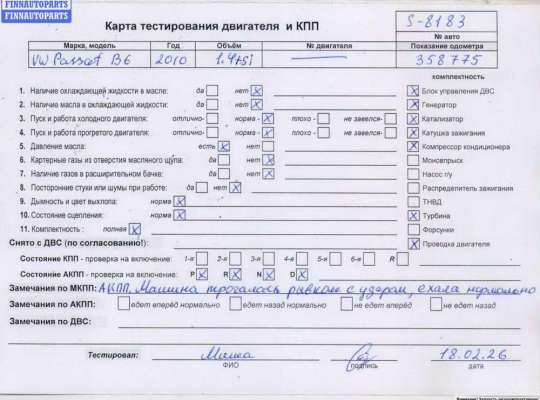 FINNAUTOPARTS
FINNAUTOPARTS
FINNAUTOPARTS
Карта тестирования двигателя и КПП
S-8183
№ авто
Марка, модель Год Объём № двигателя Показание одометра
VW Passat B6 2010 1.4TSi 358775
комплектность
1. Наличие охлаждающей жидкости в масле: да нет x
x Блок управления ДВС
2. Наличие масла в охлаждающей жидкости: да нет x
x Генератор
3. Пуск и работа холодного двигателя: отлично- норма - x плохо - не завелся-
x Катализатор
4. Пуск и работа прогретого двигателя: отлично- норма - x плохо - не завелся-
x Катушка зажигания
5. Давление масла: есть x нет
x Компрессор кондиционера
6. Картерные газы из отверстия масляного щупа: да нет x
Моновпрыск
7. Наличие газов в расширительном бачке: да нет x
Насос г/у
8. Посторонние стуки или шумы при работе: да нет x
Распределитель зажигания
9. Дымность и цвет выхлопа: норма x
ТНВД
10. Состояние сцепления: норма x
x Турбина
11. Комплектность : полная x
Форсунки
Снято с ДВС (по согласованию!):
x Проводка двигателя
Состояние КПП - проверка на включение: 1-я 2-я 3-я 4-я 5-я 6-я R
Состояние АКПП - проверка на включение: P x R x N x D x
Замечания по МКПП: АКПП. Машина трогалась рывком с ударом, ехала нормально
Замечания по АКПП: едет вперёд нормально едет назад нормально не едет вперёд не едет назад
Замечания по ДВС:
Тестировал: Миша 18.02.26
ФИО подпись дата